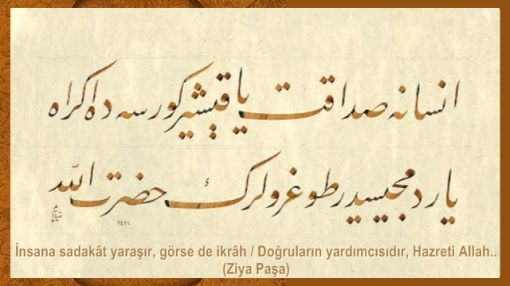 انسانه صداقت یاقیشیر كورسه ده اكراه
یاردمجیسیدر طوغرولرڭ حضرت الله
İnsana sadakât yaraşır, görse de ikrâh / Doğruların yardımcısıdır, Hazreti Allah..
(Ziya Paşa)